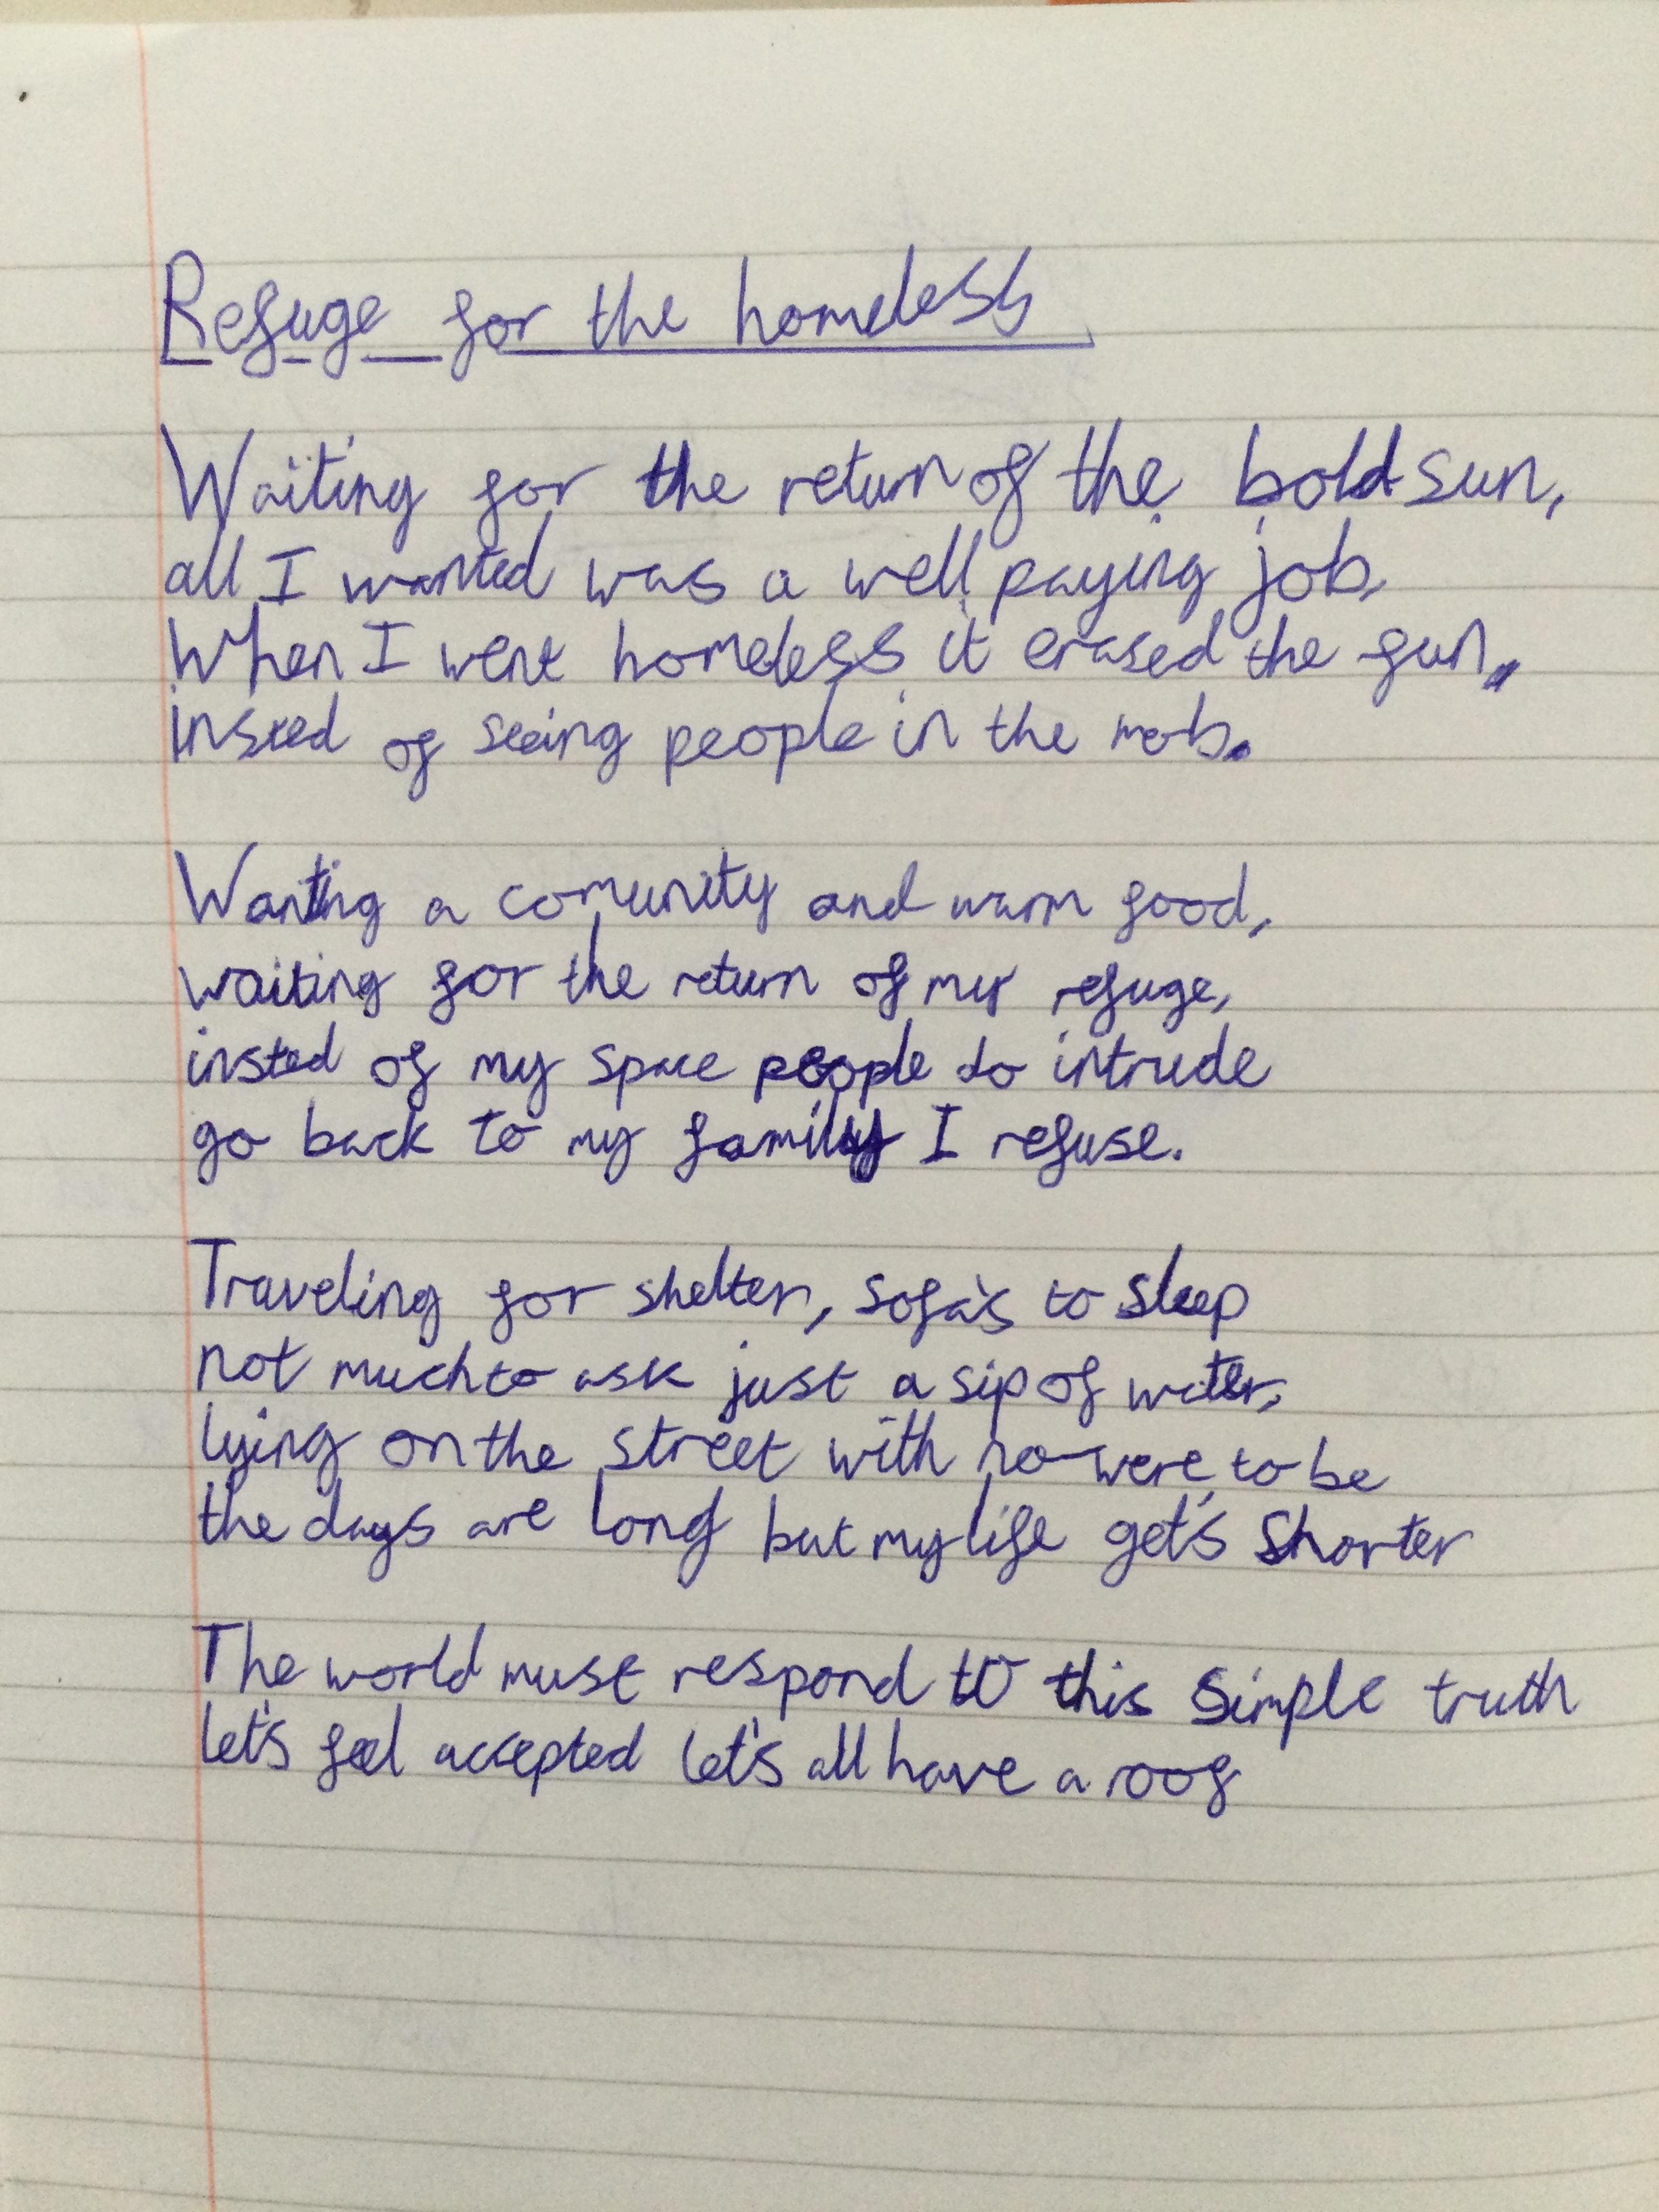 Refuge for the homeless
Waiting for the return of the bold sun,
all I wanted was a well paying job,
When I went homeless it erased the fun,
insted of seeing people in the mob.
Wanting a comunity and warm food,
waiting for the return of my refuge,
insted of my space people to intrude
go back to my family I refuse.
Traveling for shelter, sofa's to sleep
not much to ask just a sip of water,
lying on the street with no-were to be
the days are long but my life get's shorter
The world must respond to this simple truth
let's feel accepted let's all have a roof